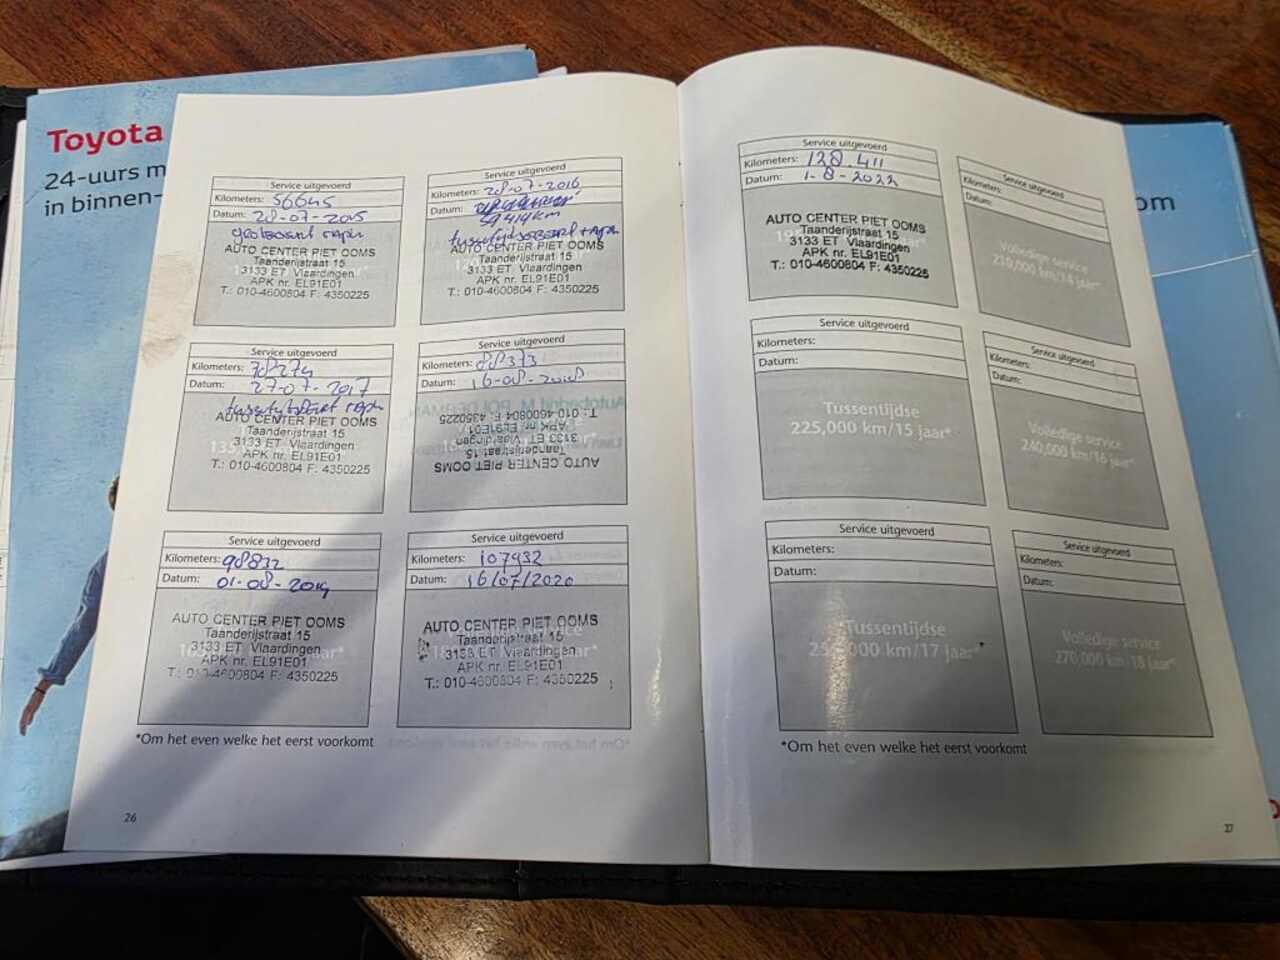 Toyota
24-uurs m
in binnen-
om
Service uitgevoerd
Kilometers: 56645
Datum: 28-07-2015
AUTO CENTER PIET OOMS
Taanderijstraat 15
3133 ET Vlaardingen
APK nr. EL91E01
T.: 010-4600804 F: 4350225
Service uitgevoerd
Kilometers: 28-07-2016
Datum:
59414km
AUTO CENTER PIET OOMS
Taanderijstraat 15
3133 ET Vlaardingen
APK nr. EL91E01
T.: 010-4600804 F: 4350225
Service uitgevoerd
Kilometers: 78274
Datum: 27-07-2017
AUTO CENTER PIET OOMS
Taanderijstraat 15
3133 ET Vlaardingen
APK nr. EL91E01
T.: 010-4600804 F: 4350225
Service uitgevoerd
Kilometers: 88373
Datum: 16-08-2018
AUTO CENTER PIET OOMS
Taanderijstraat 15
3133 ET Vlaardingen
APK nr. EL91E01
T.: 010-4600804 F: 4350225
Service uitgevoerd
Kilometers: 98832
Datum: 01-08-2019
AUTO CENTER PIET OOMS
Taanderijstraat 15
3133 ET Vlaardingen
APK nr. EL91E01
T.: 010-4600804 F: 4350225
Service uitgevoerd
Kilometers: 107932
Datum: 16/07/2020
AUTO CENTER PIET OOMS
Taanderijstraat 15
3133 ET Vlaardingen
APK nr. EL91E01
T.: 010-4600804 F: 4350225
*Om het even welke het eerst voorkomt
26
Service uitgevoerd
Kilometers: 128.411
Datum: 1-8-2022
AUTO CENTER PIET OOMS
Taanderijstraat 15
3133 ET Vlaardingen
APK nr. EL91E01
T.: 010-4600804 F: 4350225
Service uitgevoerd
Kilometers:
Datum:
Volledige service
210,000 km/14 jaar*
Service uitgevoerd
Kilometers:
Datum:
Tussentijdse
225,000 km/15 jaar*
Service uitgevoerd
Kilometers:
Datum:
Volledige service
240,000 km/16 jaar*
Service uitgevoerd
Kilometers:
Datum:
Tussentijdse
255,000 km/17 jaar*
Service uitgevoerd
Kilometers:
Datum:
Volledige service
270,000 km/18 jaar*
*Om het even welke het eerst voorkomt
27